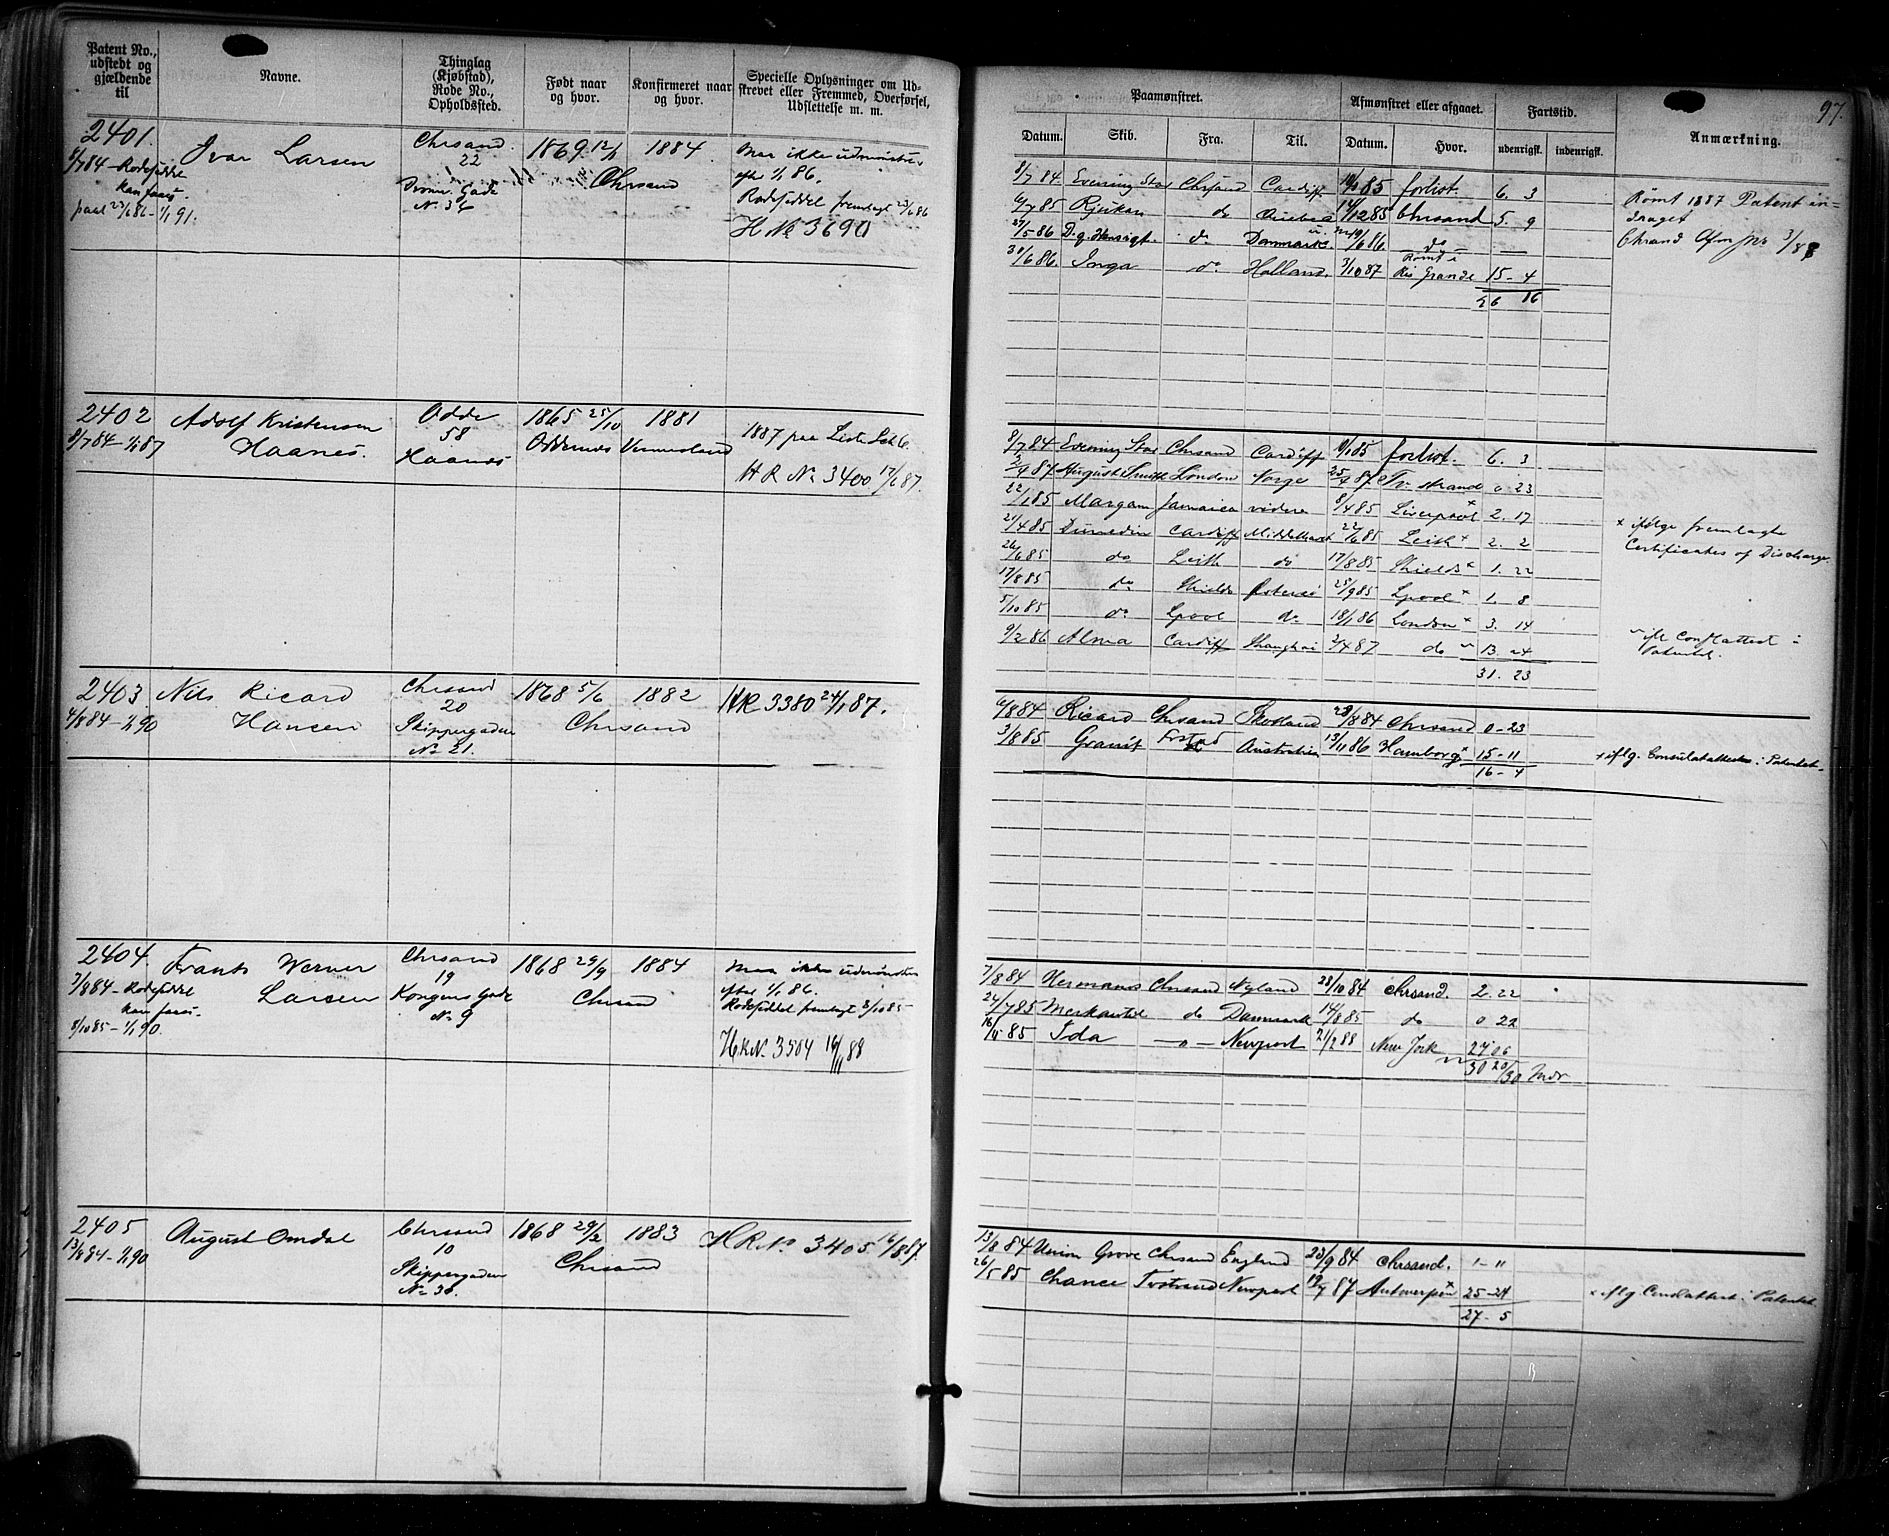 Patent No., udstedt og gjældende til
Navne.
Thinglag (Kjøbstad), Rode No., Opholdssted.
Født naar og hvor.
Konfirmeret naar og hvor.
Specielle Oplysninger om Udskrevet eller Fremmed, Overførsel, Udslettelse m. m.
Paamønstret.
Afmønstret eller afgaaet.
Fartstid.
97.
Datum. Skib. Fra. Til. Datum. Hvor. udenrigsk. indenrigsk. Anmærkning.
2401.
8/7 84 – Rodeseddel
kan faaes.
paal 23/6 86 – 1/1 91.
Ivar Larsen
Chrsand.
22
Dronn. Gade
No 34
1869 12/1 1884
Chrsand
Maa ikke udmønstres
efter 1/1 86.
Rodeseddel fremlagt 23/6 86
H No 3690
8/7 84 Evening Star Chrsand Cardiff 10/1 85 forlist. 6. 3
6/7 85 Rjukan do Quebec 14/12 85 Chrsand 5. 9
27/5 86 D. g. Hensigt. do Danmark 19/6 86 do —
30/6 86. Inga do Holland. 3/10 87 Rømt i
Rio Grande 15 – 4
26 16
Rømt 1887 Patent in=
draget
2402
8/7 84 – 1/1 87
Adolf Kristensen
Haanes.
Odde
58
Haanes
1865 25/10 1881
Oddernes
1887 paa Liste
H R No 3400 17/6 87.
8/7 84 Evening Star Chrsand Cardiff 10/1 85 forlist. 6. 3
87 August Smith London Norge 87 0. 23
22/1 85 Margam Jamaica videre 8/4 85 Liverpool x 2. 17
21/4 85 Dunedin Cardiff 22/6 85 Leith x 2. 2
26/6 85 do Leith do 17/8 85 Shields x 1. 22
17/8 85 do Shields Østersø 25/9 85 Lpool x 1. 8
5/10 85 do Lpool do 18/1 86 London x 3. 14
9/2 86 Alma Cardiff Shanghai 2/4 87 do 13. 24
31. 23
x ifølge fremlagte
Certificates of Discharge
Patentet.
2403.
4/8 84 – 1/1 90
Nils Ricard
Hansen
Chrsand
20
Skippergaden
No 21.
1868 5/6 1882
Chrsand
HR 3380 24/1 87.
6/8 84 Ricard Chrsand Skotland 28/8 84 Chrsand 0 – 23
3/8 85 Granit Australien 13/11 86 Hamborg x 15 – 11
16 – 4
x iflg. Consulatattest i Patentet.
2404.
7/8 84 – Rodeseddel
kan faaes.
8/10 85 – 1/1 90.
Frants Werner
Larsen
Chrsand
19
Kongens Gade
No 9
1868 29/9 1884
Chrsand
Maa ikke udmønstres
efter 1/1 86.
Rodeseddel fremlagt 8/10 85
H.R No. 3504 16/11 88
7/8 84 Hermanos Chrsand Nyland 28/10 84 Chrsand. 2. 22
24/7 85 Merkantil do Danmark 14/8 85 do 0 22
16/10 85 Ida — " — Newport 21/2 88 New York 27 06
30 20/30 Mdr
2405
13/8 84 – 1/1 90
August Omdal
Chrsand
10
Skippergaden
No 36.
1868 29/2 1883
Chrsand
H R No. 3405 16/8 87.
13/8 84 Union Grove Chrsand England 23/9 84 Chrsand. 1 – 11
26/5 85 Chance Tvestrand Newport 19/7 87 Antwerpen x 25 – 24
27 – 5
x iflg. Consulattest i Patentet